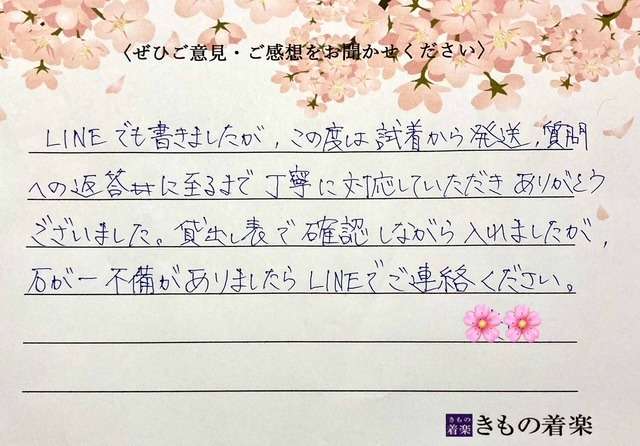 〈ぜひご意見・ご感想をお聞かせください〉
LINEでも書きましたが、この度は試着から発送、質問
への返答#に至るまで丁寧に対応していただきありがとう
ございました。貸出し表で確認しながら入れましたが、
万が一不備がありましたらLINEでご連絡ください。
きもの
着楽
きもの着楽